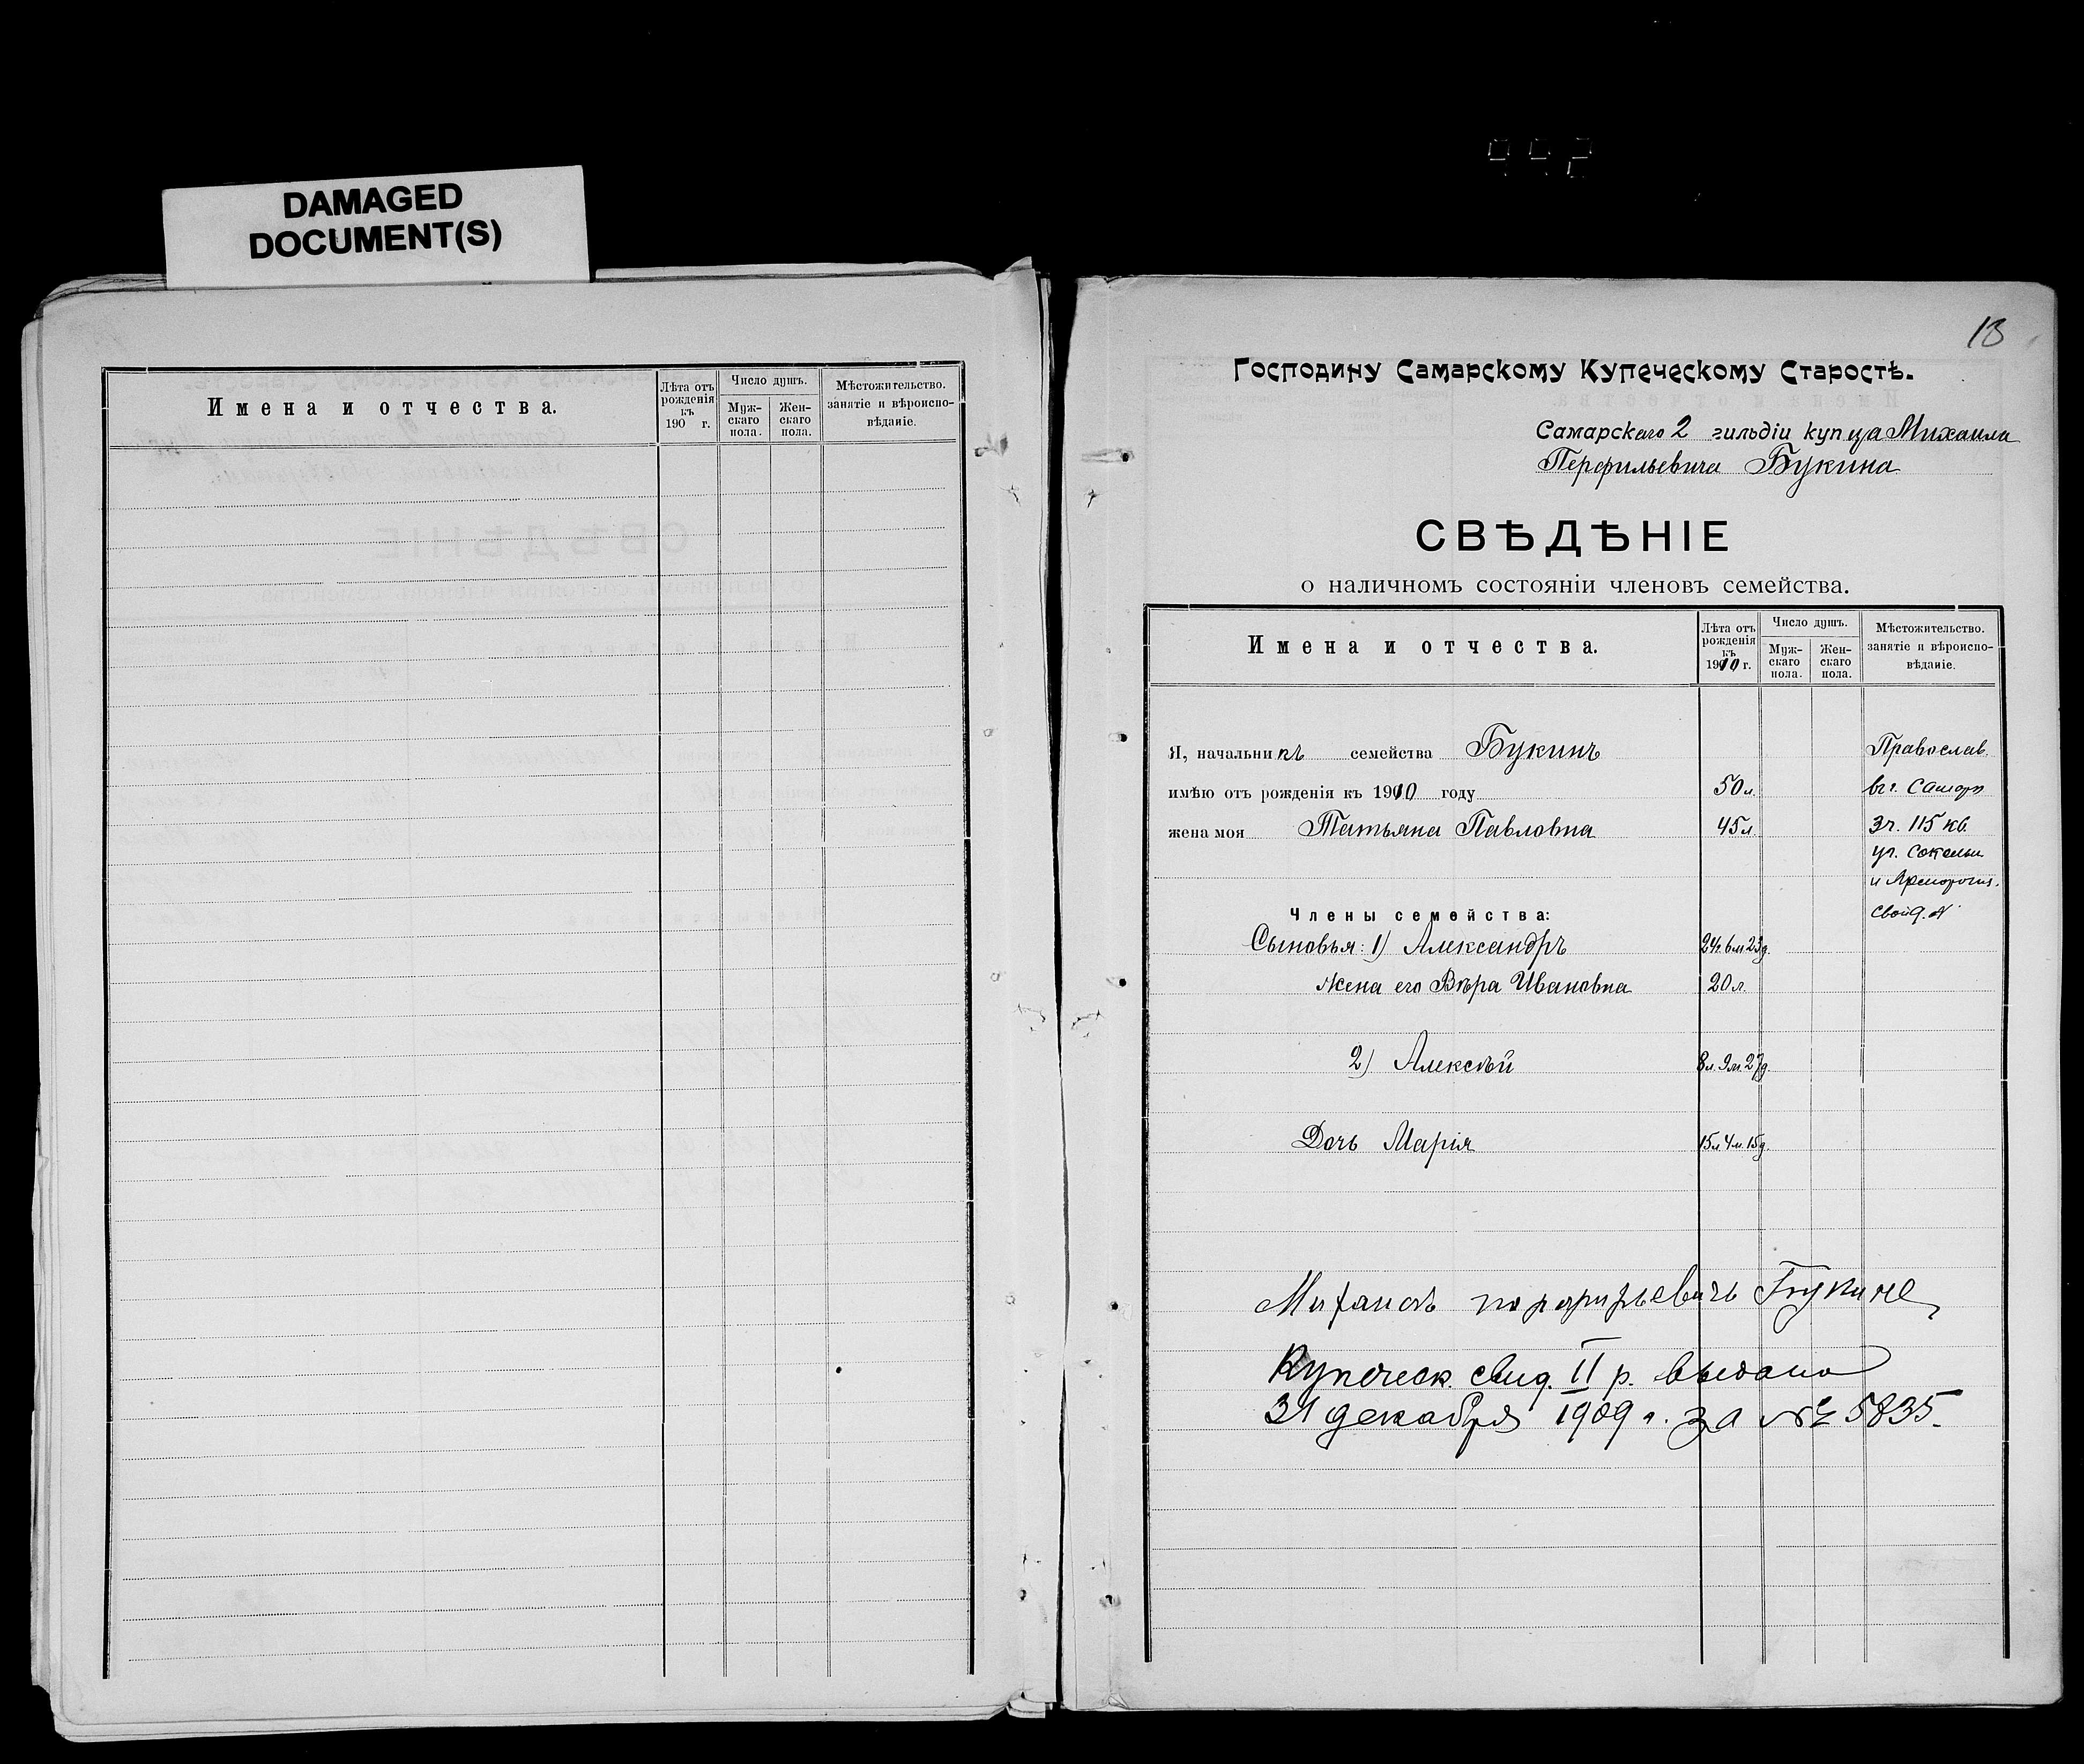 DAMAGED
DOCUMENT(S)
Имена и отчества.
Лѣта отъ рожденія къ 190 г.
Число душъ.
Мужскаго пола.
Женскаго пола.
Мѣстожительство. занятіе и вѣроисповѣданіе.
13
Господину Самарскому Купеческому Старостѣ.
Самарскаго 2 гильдіи купца Михаила
Перфильевича Букина
СВѢДѢНІЕ
о наличномъ состояніи членовъ семейства.
Имена и отчества.
Лѣта отъ рожденія къ 1910 г.
Число душъ.
Мужскаго пола.
Женскаго пола.
Мѣстожительство. занятіе и вѣроисповѣданіе.
Я, начальникъ семейства Букинъ Православ.
имѣю отъ рожденія къ 1910 году 50 л. въ г. Самарѣ
жена моя Татьяна Павловна 45 л. 3 ч. 115 кв.
уг. Сокольн.
и
Члены семейства: свой д. №
Сыновья: 1) Александръ 24 г. 6 м 23 д.
жена его Вѣра Ивановна 20 л.
2) Алексѣй 8 л. 9 м. 27 д.
Дочь Марія 15 л 4 м. 15 д.
Букине
Купеческ. свид. II р. выдано
31 декабря 1909 г. за № 5835.